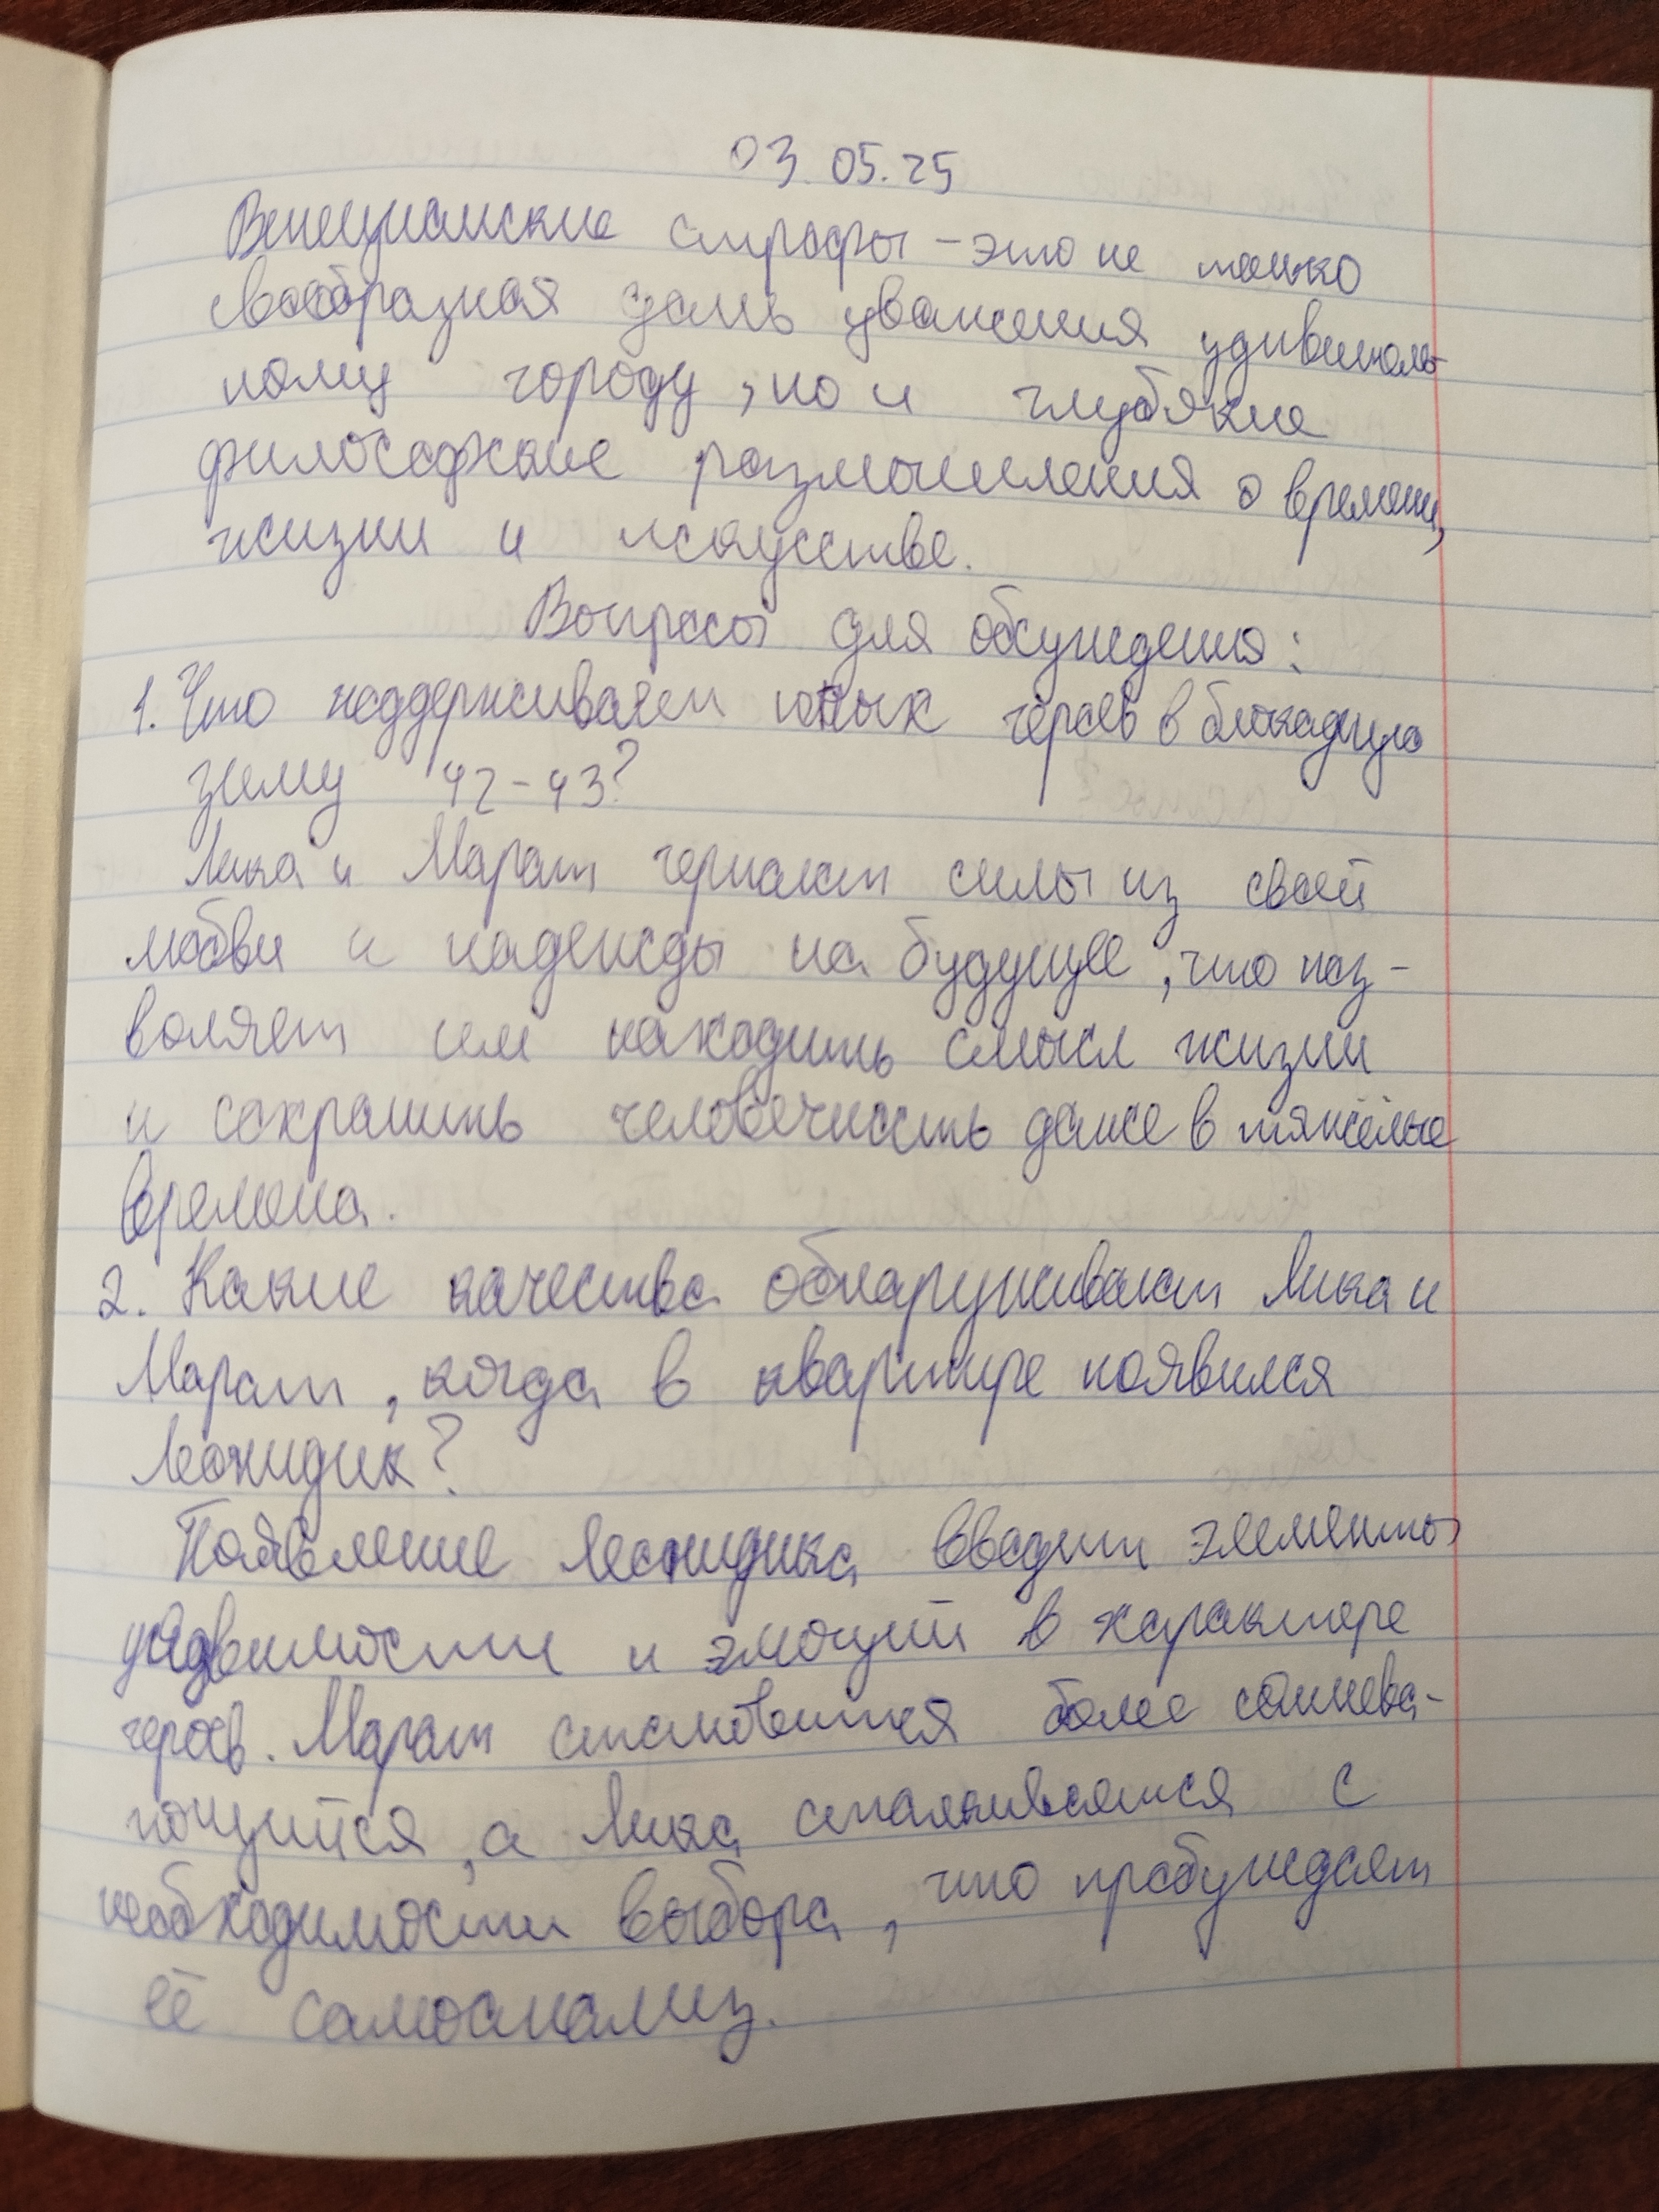 03.05.25
Венецианские строфы - это не только
своеобразная дань уважения удивитель
ному городу, но и глубокие
философские размышления о времени,
жизни и искусстве.
Вопросы для обсуждения:
1. Что поддерживает юных героев в блокадную
зиму 42-43?
Лика и Марат черпают силы из своей
любви и надежды на будущее, что поз-
воляет им находить смысл жизни
и сохранить человечность даже в тяжёлые
времена.
2. Какие качества обнаруживают Лика и
Марат, когда в квартире появился
Леонидик?
Появление Леонидика вводит элементы
уядвимости и эмоций в характере
героев. Марат становится более сомнева-
ющийся, а Лика сталкивается с
необходимости выбора, что пробуждает
её самоанализ.